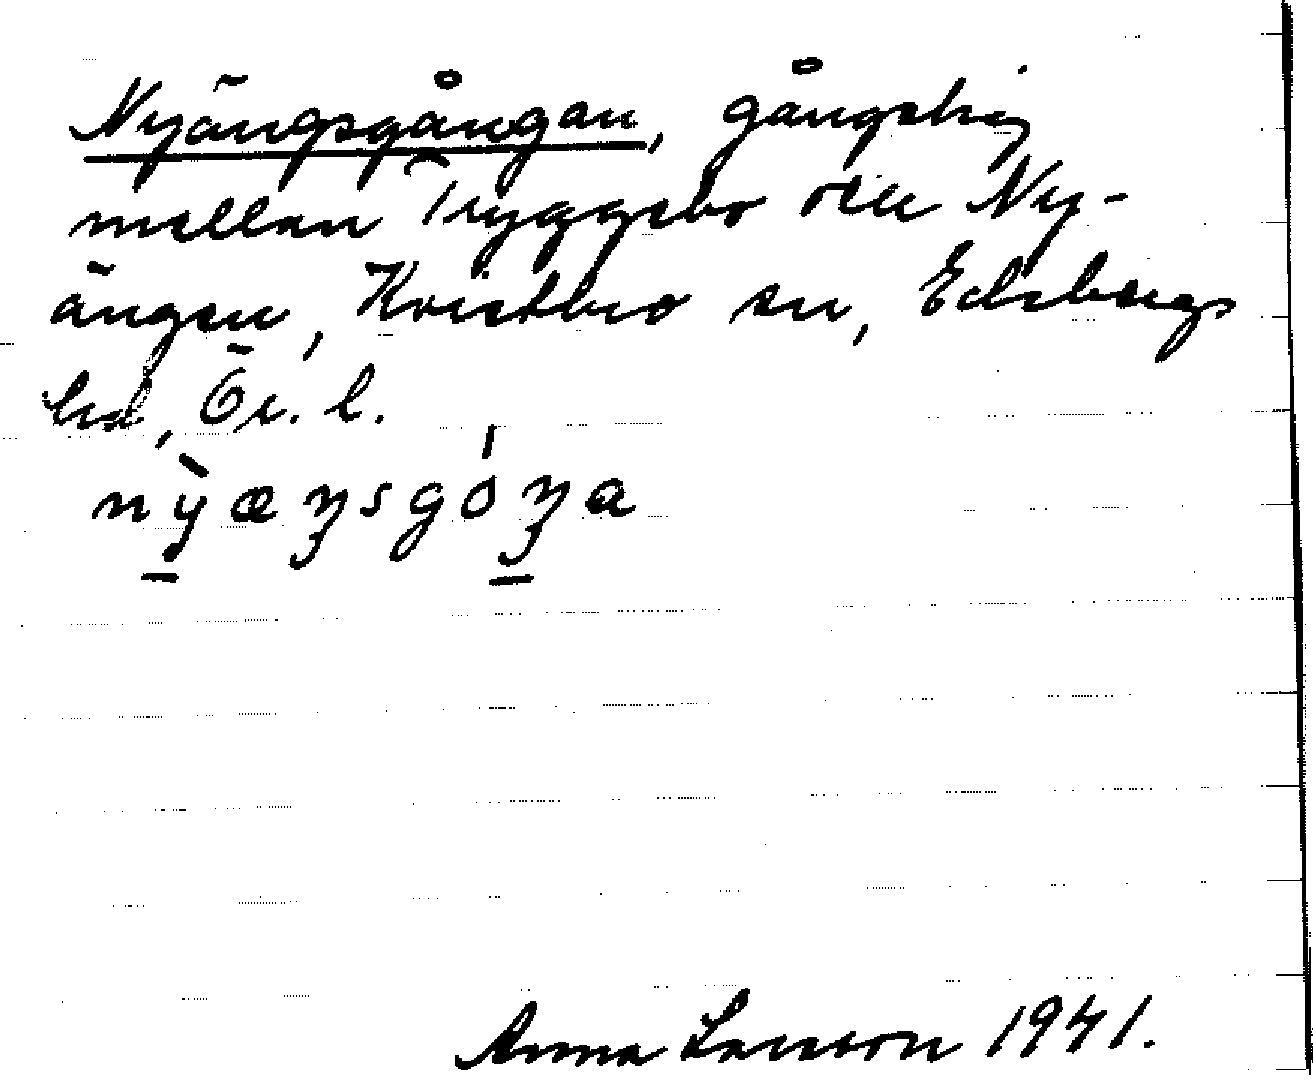 Nyängsgångan, gångstig
mellan Tryggebo och Ny-
ängen, Kvistbro sn, Edsbergs
hd, Ör. l.
nỳæŋsgóŋa
Anna Larsson 1941.